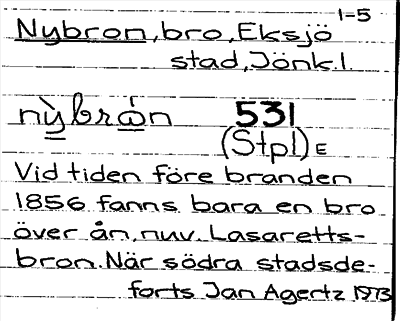 1-5
Nybron, bro, Eksjö
stad, Jönk.l.
nỳbrώn 531
(Stpl) E
Vid tiden före branden
1856 fanns bara en bro
över ån, nuv. Lasaretts-
bron. När södra stadsde-
forts Jan Agertz 1973